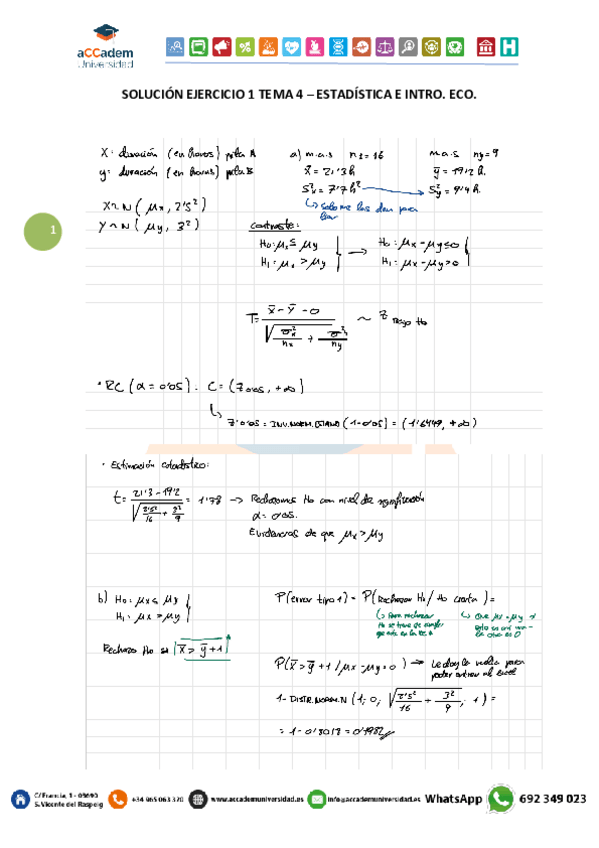 aCCadem
Universidad
SOLUCIÓN EJERCICIO 1 TEMA 4 – ESTADÍSTICA E INTRO. ECO.
1
X: duración (en horas) pila A
Y: duración (en horas) pila B
X ~ N (μx, 2'5²)
Y ~ N (μy, 3²)
a) m.a.s nx = 16
x̄ = 21'3 h
S²x = 7'7 h²
m.a.s ny = 9
ȳ = 19'2 h.
S²y = 9'4 h.
↳ solo me las dan para liar
contraste:
H₀: μx ≤ μy → H₀: μx - μy ≤ 0
H₁: μx > μy H₁: μx - μy > 0
T = (x̄ - ȳ - 0) / √(σ²x/nx + σ²y/ny) ~ Z bajo H₀
· RC (α = 0'05). C = (Z0'05, +∞)
↳ Z0'05 = INV.NORM.ESTAND (1-0'05) = (1'6449, +∞)
· Estimación estadístico:
t = (21'3 - 19'2) / √(2'5²/16 + 3²/9) = 1'78 → Rechazamos H₀ con nivel de significación
α = 0'05.
Evidencias de que μx > μy
b) H₀: μx ≤ μy
H₁: μx > μy
Rechazo H₀ si x̄ > ȳ + 1
P(error tipo 1) = P(Rechazar H₀ / H₀ cierta) =
P(x̄ > ȳ + 1 / μx - μy = 0) → Le doy la vuelta para
poder entrar al Excel
1 - DISTR.NORM.N (1; 0, √(2'5²/16 + 3²/9), 1) =
= 1 - 0'8018 = 0'1982
C/ Francia, 1 - 03690
S. Vicente del Raspeig
+34 965 063 320
www.accademuniversidad.es
info@accademuniversidad.es
WhatsApp
692 349 023